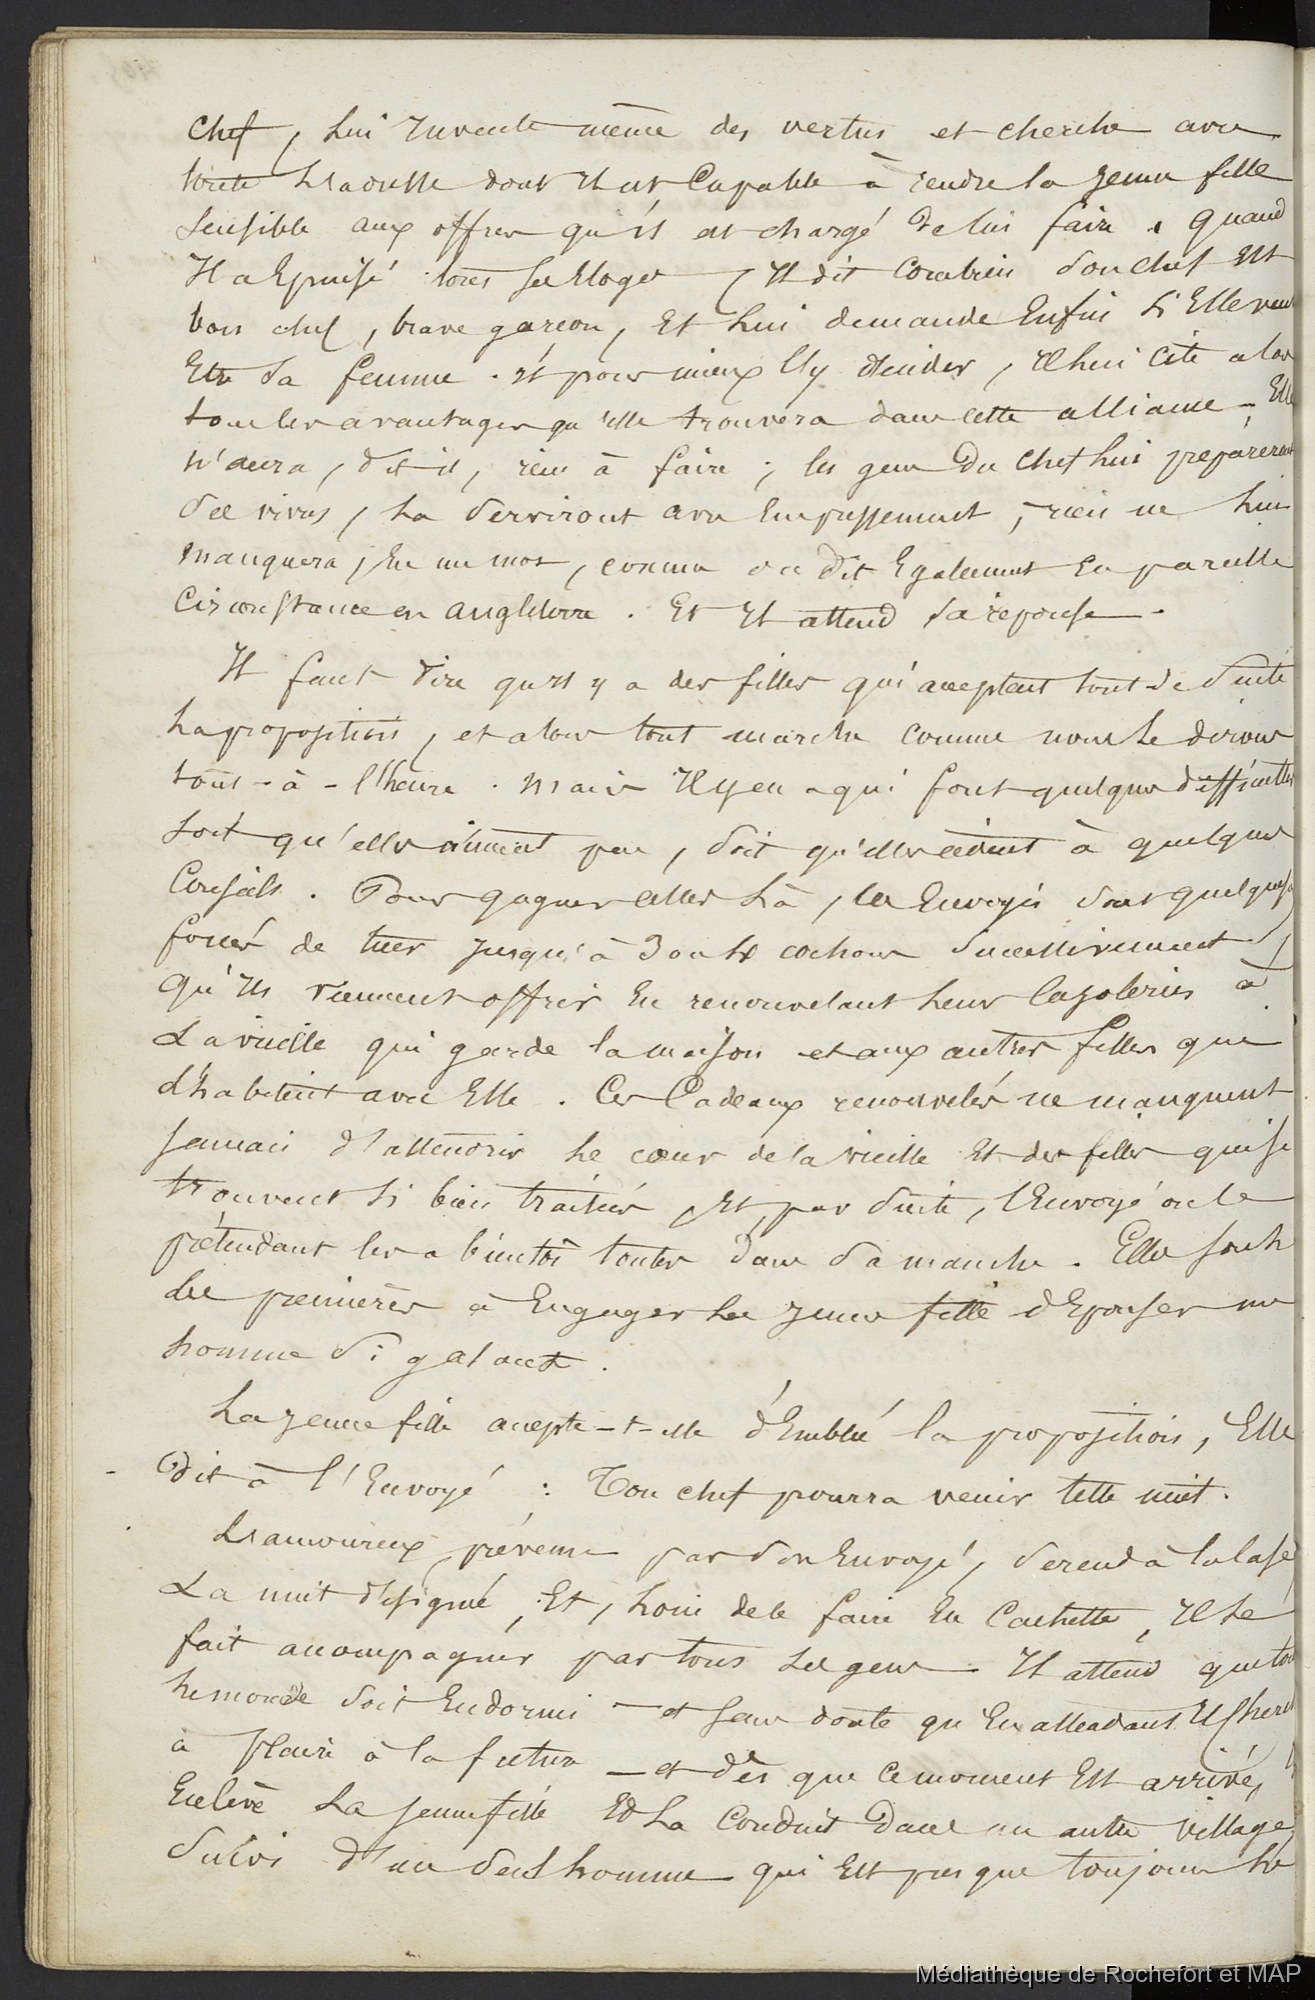 chef, lui invente même des vertus et cherche avec
toute l'adresse dont il est capable à rendre la jeune fille
sensible aux offres qu'il est chargé de lui faire. Quand
il a épuisé tous ses éloges, il dit combien son chef est
bon chef, brave garçon, et lui demande enfin si elle veut
être sa femme. Et pour mieux l'y décider, il lui cite alors
tous les avantages qu'elle trouvera dans cette alliance - Elle
n'aura, dit-il, rien à faire ; les gens du chef lui prépareront
des vivres, la serviront avec empressement, rien ne lui
manquera, en un mot, comme on dit également en pareille
circonstance en angleterre. Et il attend sa réponse -
Il faut dire qu'il y a des filles qui acceptent tout de suite
la proposition, et alors tout marche comme nous le dirons
tout-à-l'heure. Mais il y en a qui font quelques difficultés
soit qu'elles aiment peu, soit qu'elles cèdent à quelques
conseils. Pour gagner celles là, les envoyés sont quelquefois
forcés de tuer jusqu'à 3 ou 4 cochons successivement,
qu'ils viennent offrir en renouvelant leurs cajoleries à
la vieille qui garde la maison et aux autres filles qui
l'habitent avec elle. Ces cadeaux renouvelés ne manquent
jamais d'attendrir le cœur de la vieille et des filles qui se
trouvent si bien traitées, et, par suite, l'envoyé ou le
prétendant les a bientôt toutes dans sa manche. Elles sont
les premières à engager la jeune fille d'épouser un
homme si galant.
La jeune fille accepte-t-elle d'emblée la proposition, Elle
dit à l'Envoyé : Ton chef pourra venir telle nuit.
L'amoureux, prévenu par son envoyé, se rend à la case
la nuit désignée, et, loin de le faire en cachette, il se
fait accompagner par tous ses gens. Il attend que tout
le monde soit endormi - et sans doute qu'en attendant il cherche
à plaire à la future - et dès que ce moment est arrivé,
enlève la jeune fille et la conduit dans un autre village,
suivi d'un seul homme qui est presque toujours le
Médiathèque de Rochefort et MAP